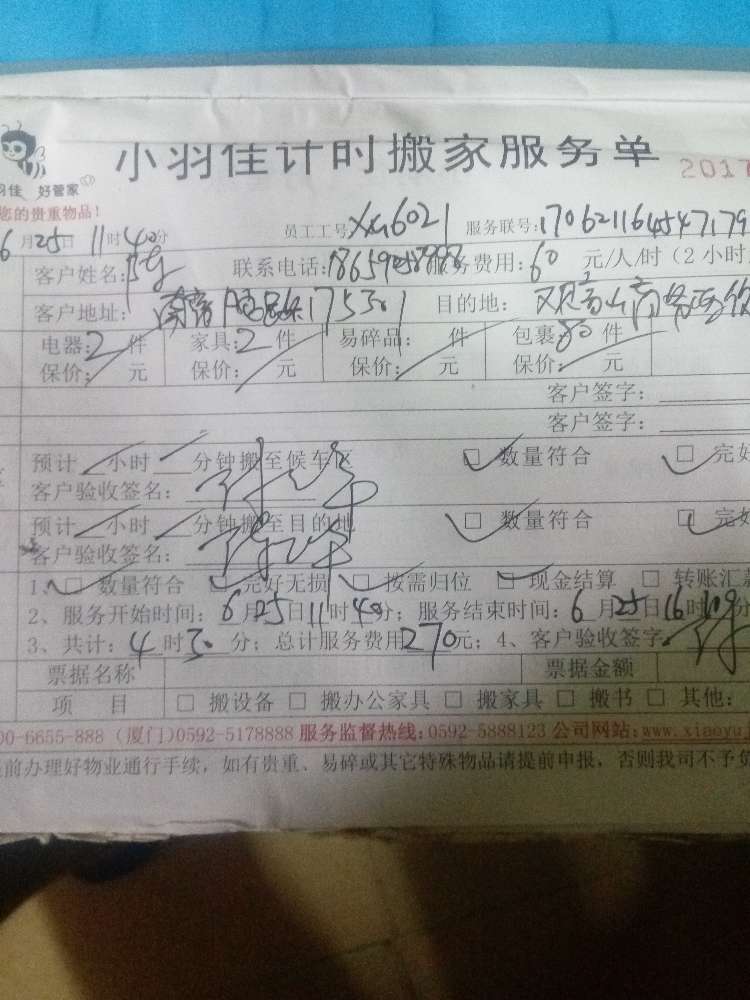 小羽佳计时搬家服务单 2017
羽佳 好管家
您的贵重物品!
6月25日11时40分 员工工号:XM6021 服务联号:170621164547179
客户姓名: 联系电话:18659 服务费用:60元/人/时(2小时
客户地址: 175 301 目的地:观音山商务
电器:2件 家具:2件 易碎品: 件 包裹:30件
保价: 元 保价: 元 保价: 元 保价: 元
客户签字:
客户签字:
预计 小时 分钟搬至候车区 □ 数量符合 □ 完好
客户验收签名:
预计 小时 分钟搬至目的地 □ 数量符合 □ 完好
客户验收签名:
1、□ 数量符合 □ 完好无损 □ 按需归位 □ 现金结算 □ 转账汇款
2、服务开始时间:6月25日11时40分;服务结束时间:6月25日16时10分
3、共计:4时30分;总计服务费用270元;4、客户验收签字
票据名称 票据金额
项 目 □ 搬设备 □ 搬办公家具 □ 搬家具 □ 搬书 □ 其他:
00-6655-888 (厦门)0592-5178888 服务监督热线:0592-5888123 公司网站:www.xiaoyuj
前办理好物业通行手续,如有贵重、易碎或其它特殊物品请提前申报,否则我司不予负